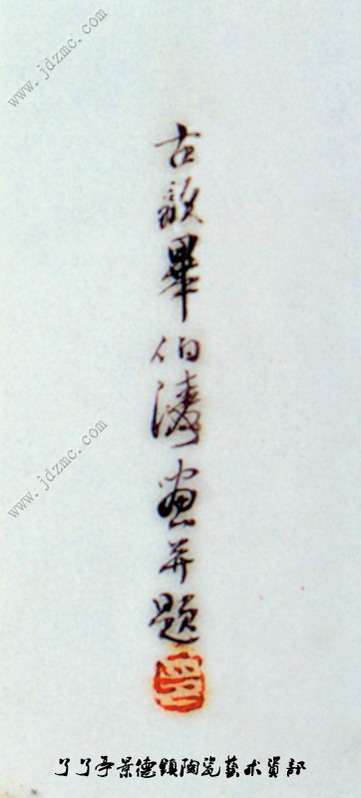 www.jdzmc.com
古歙畢伯濤畫并題
www.jdzmc.com
了了亭景德鎮陶瓷藝术資部